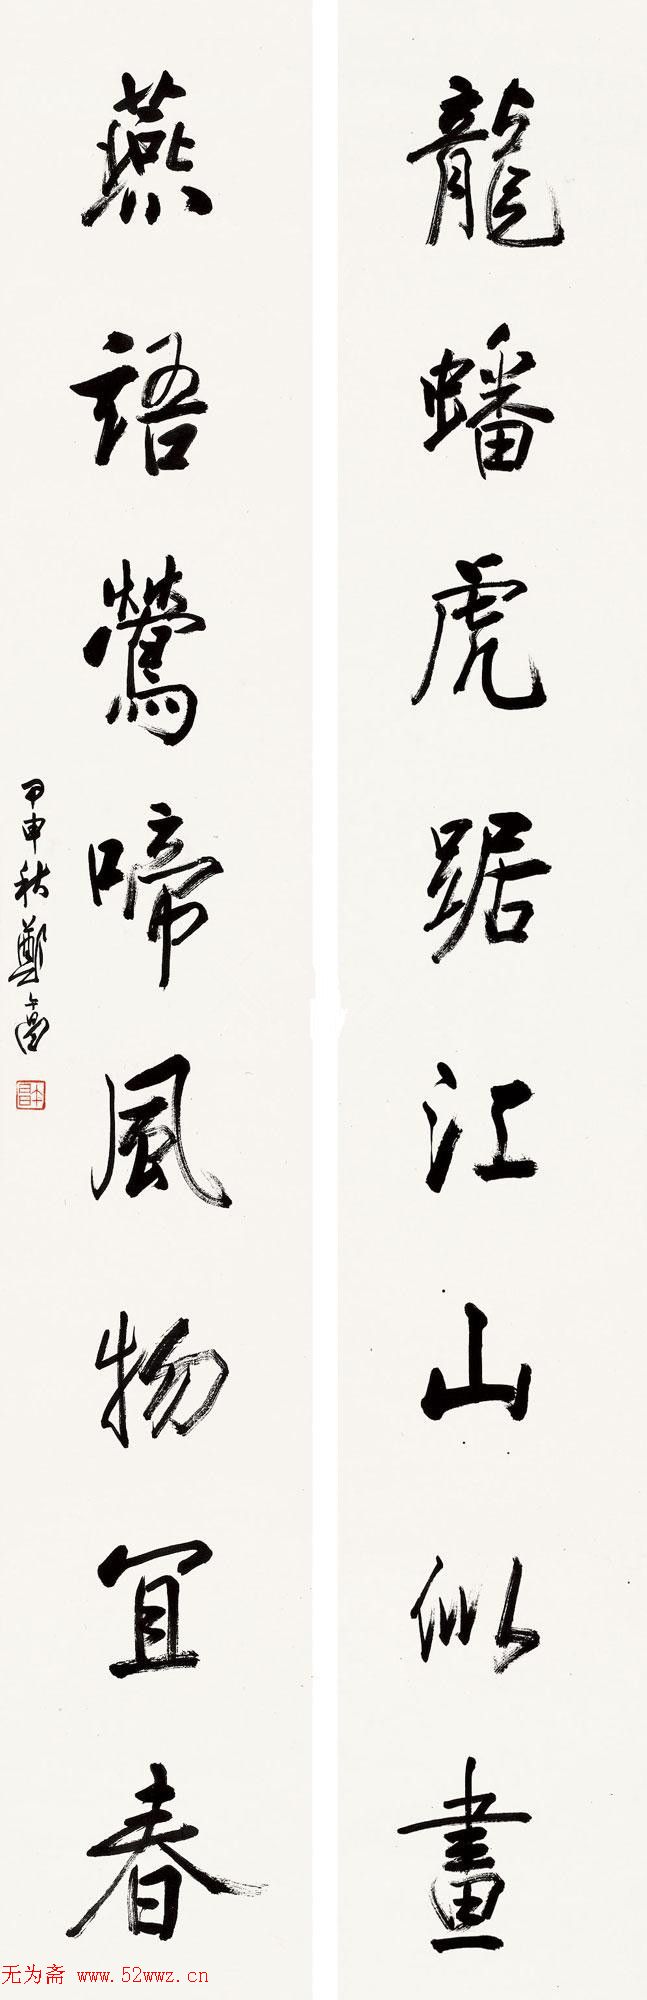 龍蟠虎踞江山似畫
燕語鶯啼風物宜春
甲申秋鄭午昌
午昌
无为斋 www.52wwz.cn